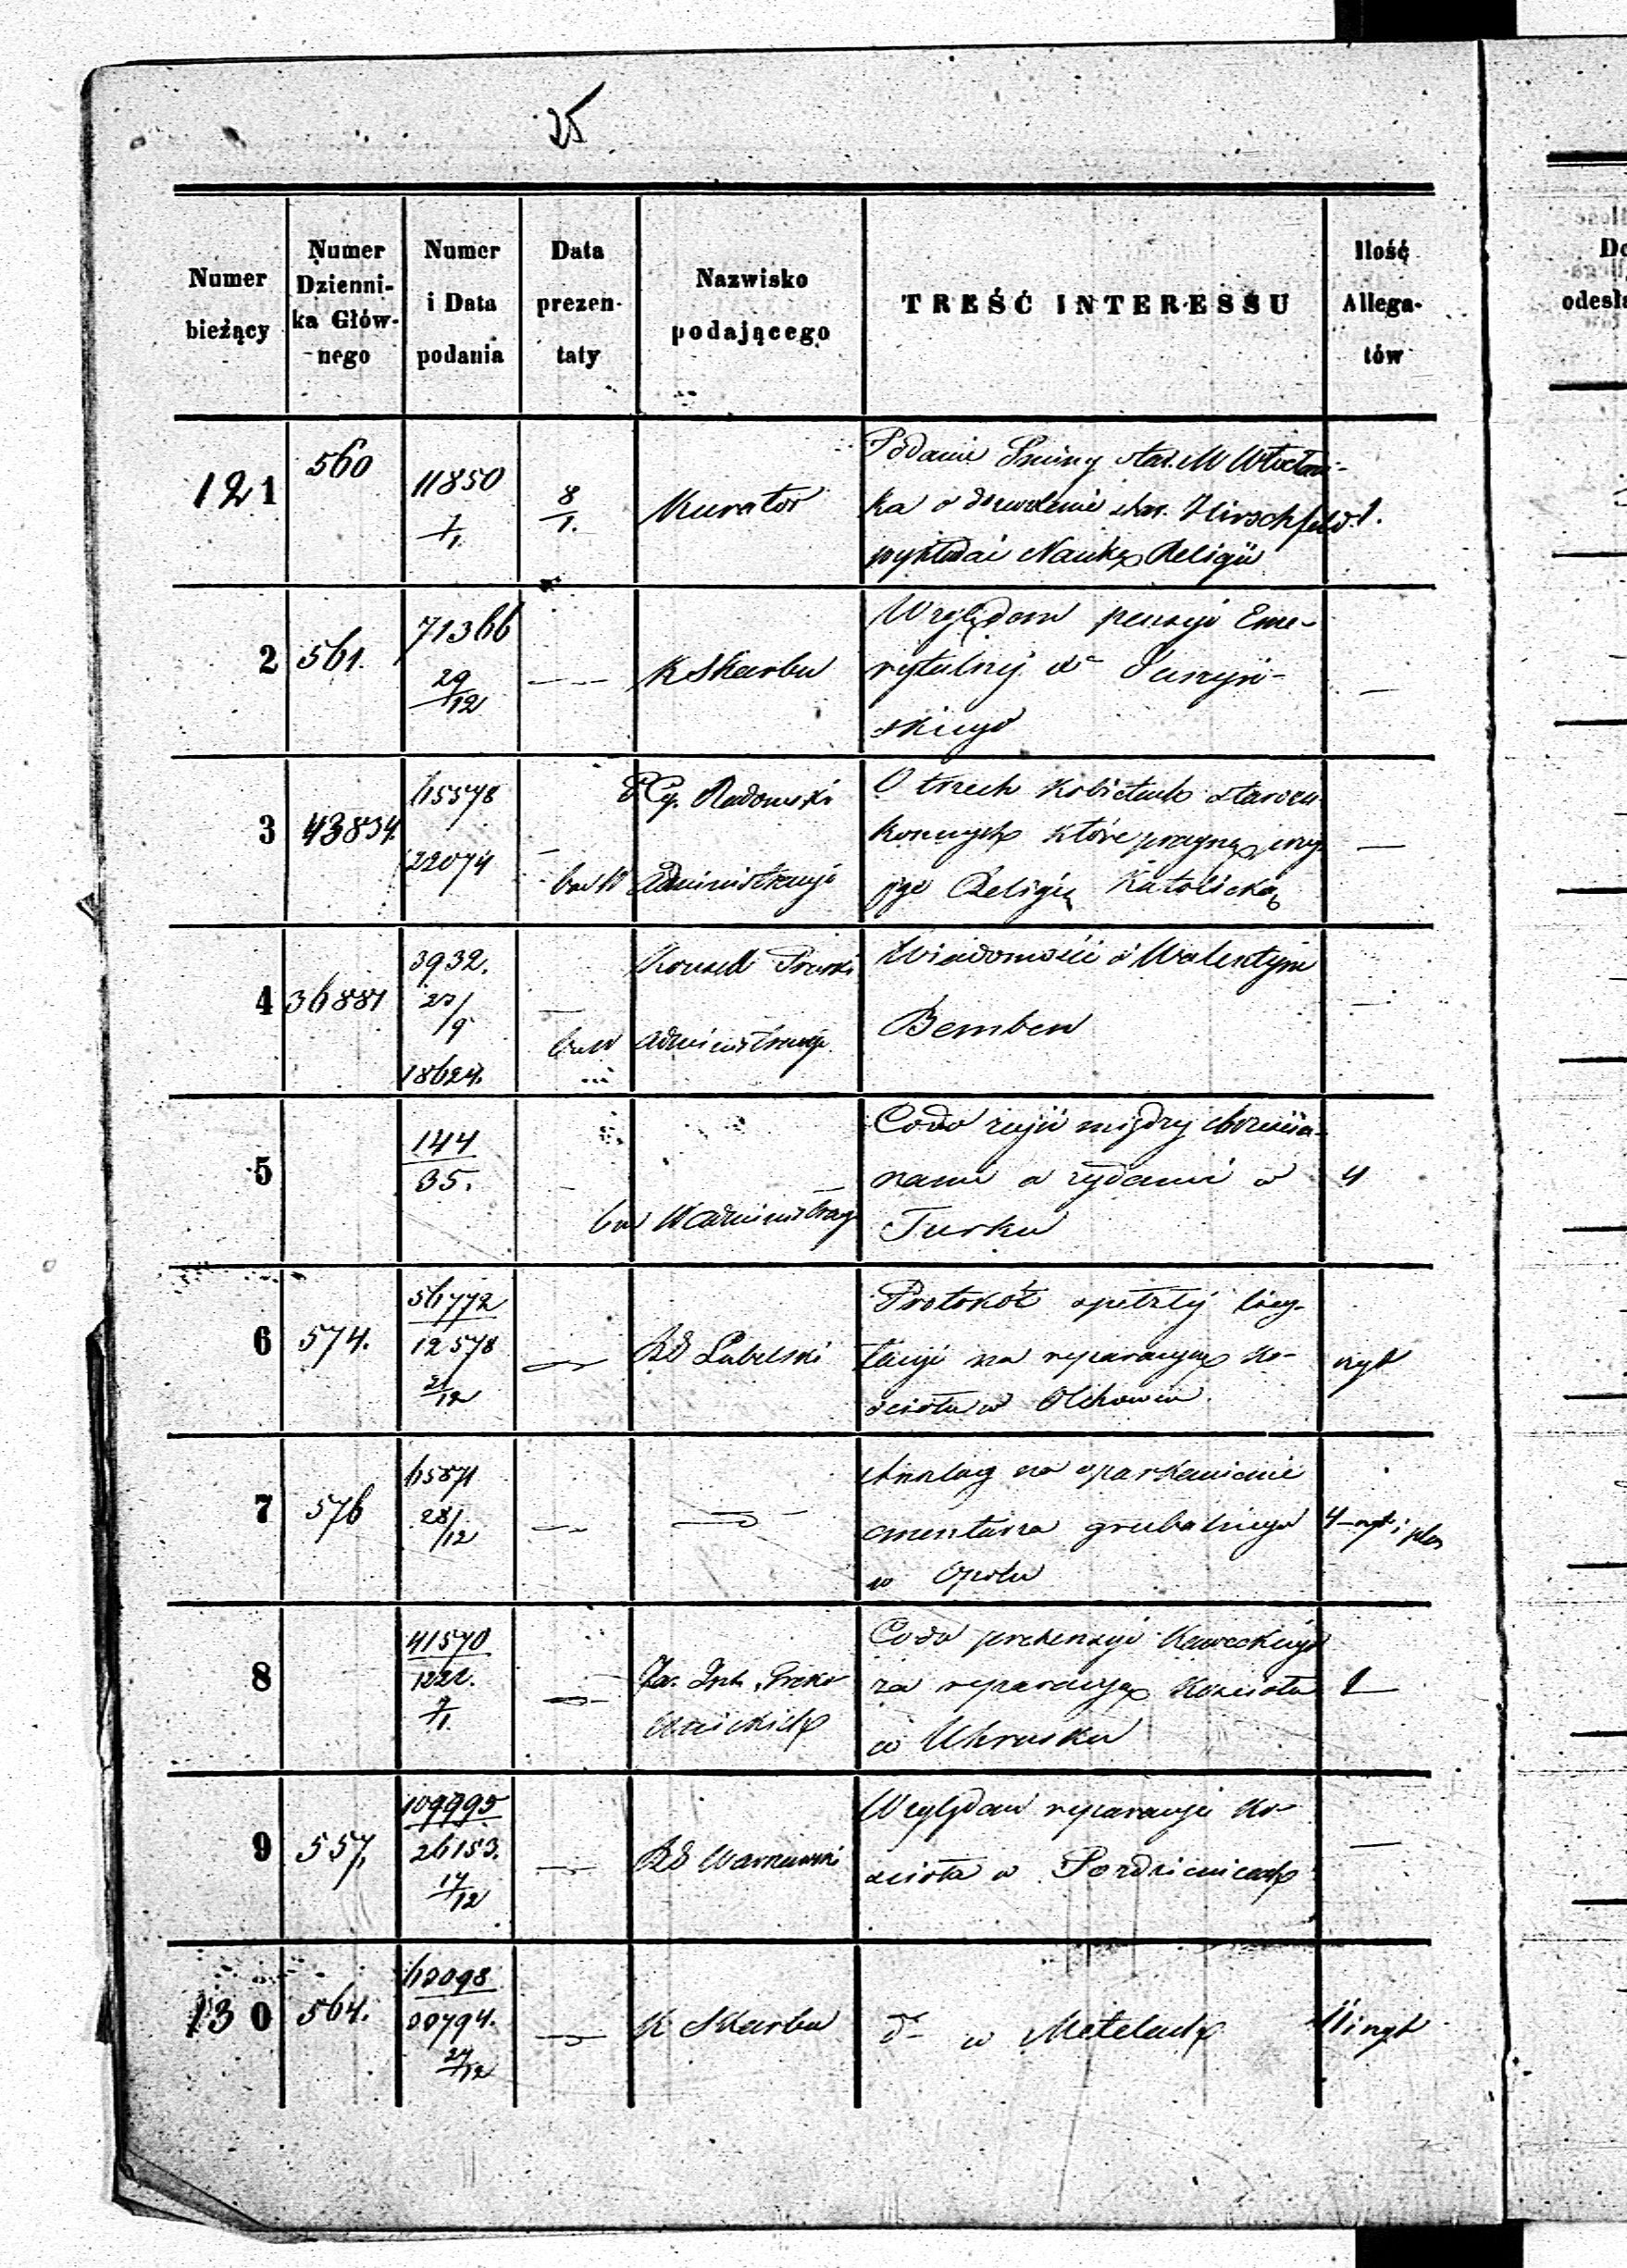 25
Numer bieżący
Numer Dzienni- ka Głów- nego
Numer i Data podania
Data prezen- taty
Nazwisko podającego
TREŚĆ INTERESSU
Ilość Allega- tów
121 560 11850 7/1. 8/1. Kurator
Podanie Gminy star. M Włocław-
ka o dozwolenie star. Hirschfeld. 1.
wykładać Naukę Religii
2 561. 71366 29/12 — K Skarbu
Względem pensyi Eme-
rytalnej dla
skiego —
3 43834. 65578 22074 — Radomski
Administracyi
O trzech kobietach staroza-
konnych które pragną przy-
jąć Religię Katolicką —
4 36881 3932. 27/9 18624. — Konsul Pruski
Administracyi
Wiadomość o Walentym
Bemben —
5 144/35. — W Administracyi
Co do zajść między chrześcia-
nami a żydami w 4
Turku
6 574. 56772 12578 21/12 — RG Lubelski
Protokół spełzłej licy-
tacyi na reparacyę ko-
ścioła w Olchowcu
7 576 65871 28/12 — —
Anszlag na oparkanienie
cmentarza grzebalnego
w Opolu
8 41570 1222. 7/1. —
Co do pretensyi Kaweckiego
za reparacyę Kościoła 1
w Uhrusku
9 557, 109995 26153. 17/12 — RG Warszawski
Względem reparacyi ko-
ścioła w —
130 564. 62098 20794. 24/12 — K Skarbu
do w Metelach
Do
odesła